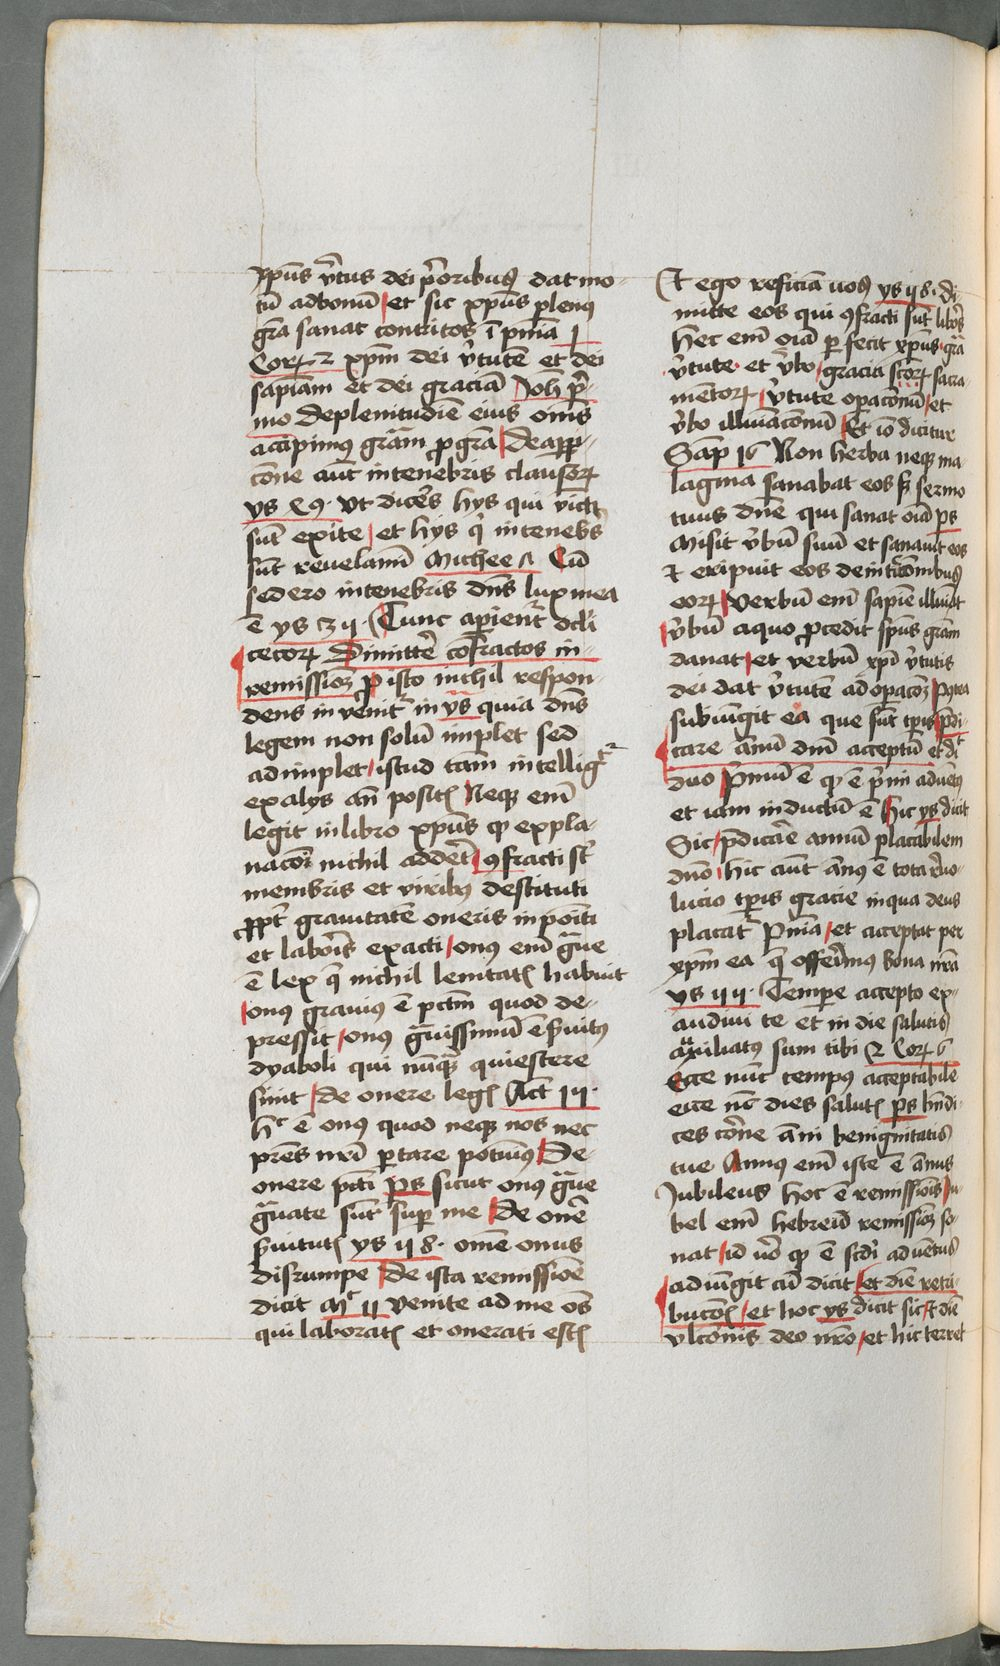 xp̄us v̄tus dei p̄oribus dat mo-
tū ad bonū et sic xp̄us plenus
gr̄a sanat contritos ī pn̄ia j
Corꝝ 2 xp̄m dei v̄tutē et dei
sapiam et dei graciā Joh̄ p̄-
mo de plenitudīe eius om̄s
accepimus gr̄am ꝓ gr̄a De app-
cōne aut̄ in tenebris clausorꝝ
ys 49 vt dicēs hys qui victi
sūt exite et hys q̄ in tenebs
sūt reuelamī Michee Cū
sedero in tenebris dn̄s lux mea
ē ys Tunc aperient̄ oc̄li
cecorꝝ Dimittē confractos in
remissionē ꝓ isto nichil respon-
dens in venit̄ in ys quia dn̄s
legem non solū implet sed
ad implet istud tam̄ intelligit̄
ex alys an̄ positꝭ Neqꝫ em̄
legit in libro xp̄us qꝫ expla-
nacōi nichil addet̄ ꝯfracti sūt
membris et viribus destituti
ꝓpt̄ grauitatē oneris inpoīti
et laborīs exacti onus em̄ gͣue
ē lex q̄ nichil lenitatꝭ habuit
onus grauius ē pctm̄ quod de-
pressit onus gͣuissimū ē s̄uitus
dyaboli qui nūqͣ quiescere
sinit de onere legꝭ Act
hͦ ē onus quod neqꝫ nos nec
pr̄es nr̄i portare potuimus De
onere pcti ps sicut onus gͣue
gͣuate sūt super me De onē
s̄uitutꝭ ys om̄e onus
disrumpe De ista remissiōe
dicit Mͭ 11 venite ad me om̄s
qui laboratꝭ et onerati estꝭ
Et ego reficiā uos ys di
mitte eos qui ꝯfracti sūt libōs
hec em̄ oīa perfecit xp̄us gr̄a
v̄tute et v̄bo gracia scōrꝝ sacra-
mentorꝝ v̄tute operacōnū et
v̄bo illuīacōnū Et iō dicitur
Sap 16 Non herba neqꝫ ma
lagma sanabat eos sꝫ sermo
tuus dn̄e qui sanat oīa ps
Misit v̄bū suū et sanauit eos
et eripuit eos de int̄icōnibus
eorꝝ verbū em̄ sapiē illuīat
v̄bū a quo ꝓcedit sp̄us gr̄am
danat et verbū xp̄i v̄tutis
dei dat v̄tutē ad operacōꝫ Postea
subiungit ea que sūt tp̄is p̄di-
care annū dn̄i acceptū et dͭ
duo Pͥmū ē qꝫ ē pͥmi aduētus
et iam inductū ē hic ys dicit
Sic p̄dicarē annū placabilem
dn̄o hic aut̄ annus ē tota reuo-
lucio tp̄is gracie in qua deus
placat̄ Pn̄ia et acceptat per
xp̄m ea q̄ offerimus bona nr̄a
ys Tempore accepto ex-
audiui te et in die salutis
auxiliatus sum tibi 2 Corꝝ 6
Ecce nūc tempus acceptabile
ecce nūc dies salutꝭ ps bn̄di-
ces corōne an̄i benignitatis
tue Annus em̄ iste ē annus
Jubileus hoc ē remissiōis Ju-
bel em̄ hebreū remissionē so-
nat id v̄o qꝫ ē scd̄i aduentus
adiūgit cū dicit et diē retri-
bucōꝭ et hoc ys dicit sic et diē
vlcōnis deo nr̄o et hic terret